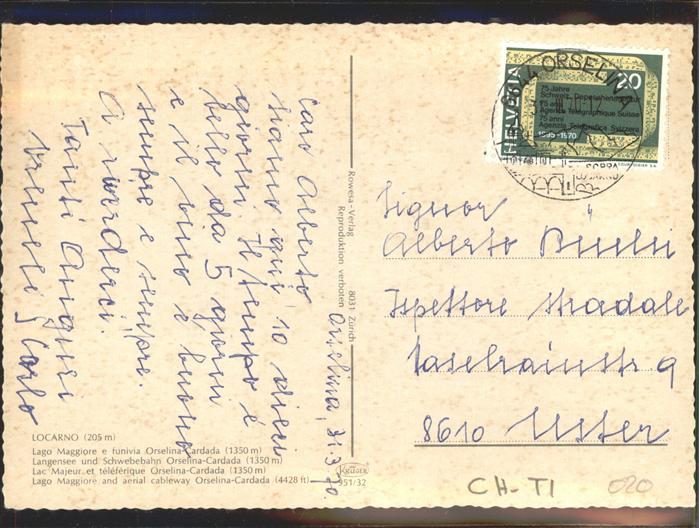 Orselina, 31.3.70
Caro Alberto
siamo qui 10 dieci
giorni. Il tempo è
bello da 5 giorni
e il vino è buono
sempre e sempre.
A rivederci.
Tanti Auguri
Vreneli Carlo
Rowesa-Verlag 8031 Zürich
Reproduktion verboten
6644 ORSELINA
HELVETIA
20
75 Jahre
Schweiz. Depeschenagentur
75 ans
Agence Télégraphique Suisse
75 anni
Agenzia Telegrafica Svizzera
1895-1970
COURVOISIER S.A.
Signor
Alberto
Ispettore stradale
8610 Uster
LOCARNO (205 m)
Lago Maggiore e funivia Orselina-Cardada (1350 m)
Langensee und Schwebebahn Orselina-Cardada (1350 m)
Lac Majeur et téléférique Orselina-Cardada (1350 m)
Lago Maggiore and aerial cableway Orselina-Cardada (4428 ft)
Krüger
951/32
CH-TI
020